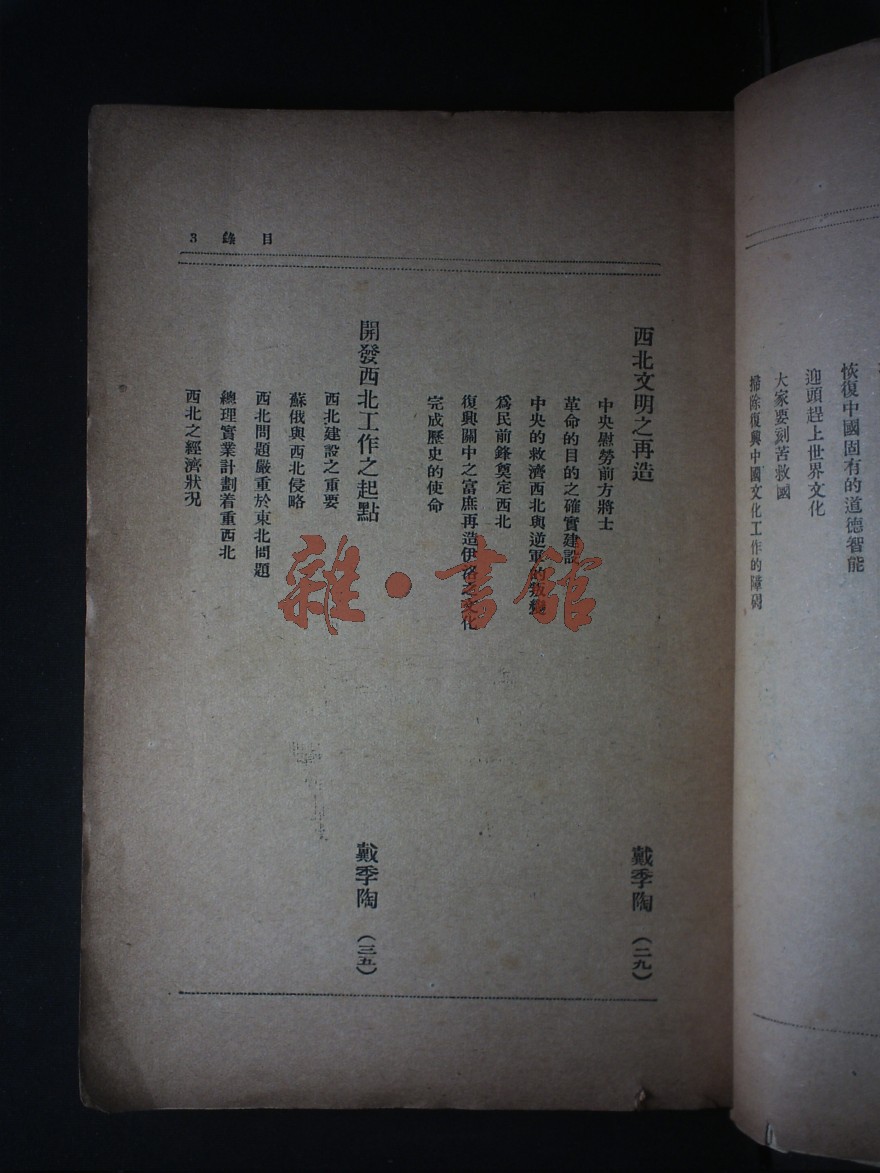 恢復中國固有的道德智能
迎頭趕上世界文化
大家要刻苦救國
掃除復興中國文化工作的障碍
目錄 3
西北文明之再造 戴季陶 (二九)
中央慰勞前方將士
革命的目的之確實建設
中央的救濟西北與逆軍的叛變
爲民前鋒奠定西北
復興關中之富庶再造伊洛之文化
完成歷史的使命
開發西北工作之起點 戴季陶 (三五)
西北建設之重要
蘇俄與西北侵略
西北問題嚴重於東北問題
總理實業計劃着重西北
西北之經濟狀況
雜·書館